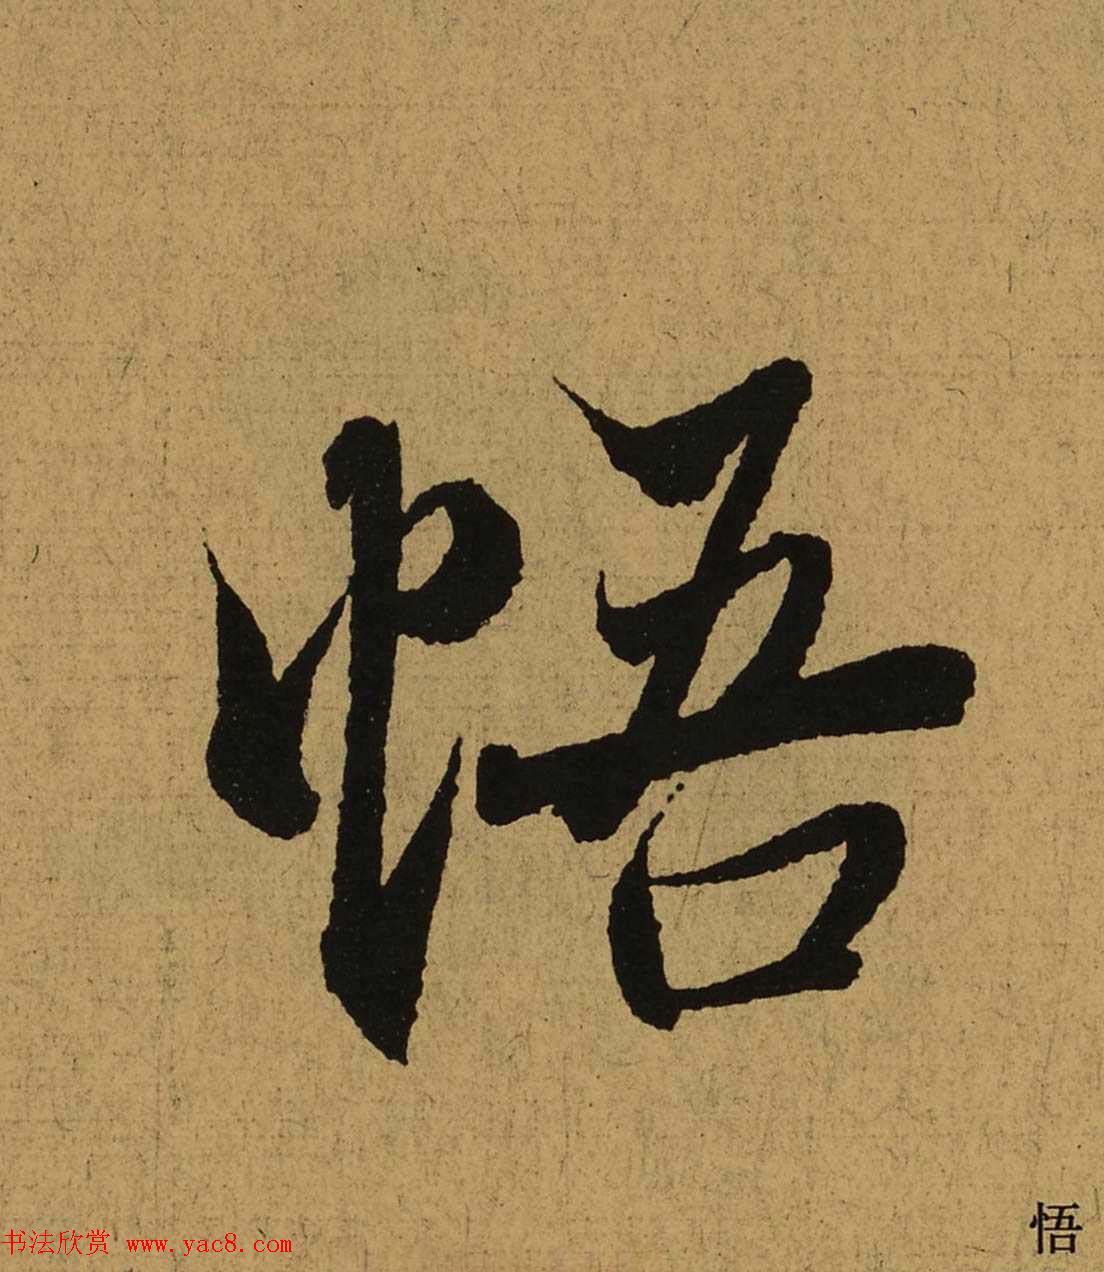 悟
悟
书法欣赏 www.yac8.com